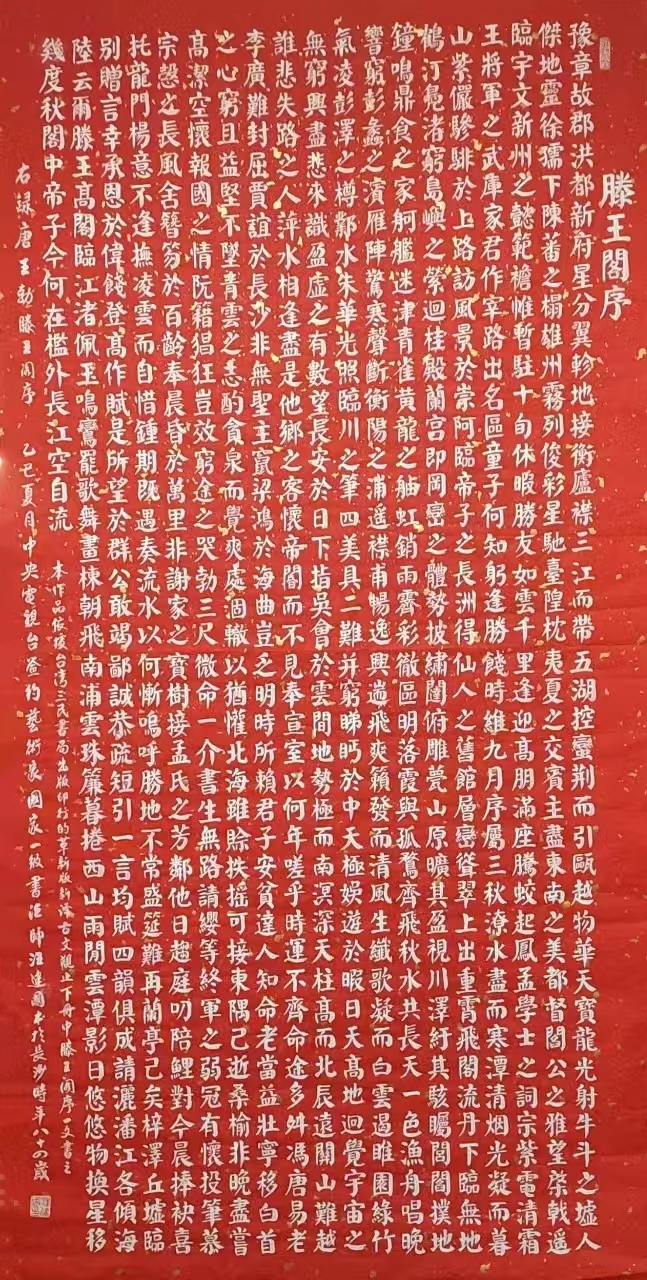 滕王閣序
豫章故郡洪都新府星分翼軫地接衡廬襟三江而帶五湖控蠻荊而引甌越物華天寶龍光射牛斗之墟人
傑地靈徐孺下陳蕃之榻雄州霧列俊彩星馳臺隍枕夷夏之交賓主盡東南之美都督閻公之雅望棨戟遥
臨宇文新州之懿範襜帷暫駐十旬休暇勝友如雲千里逢迎高朋滿座騰蛟起鳳孟學士之詞宗紫電清霜
王將軍之武庫家君作宰路出名區童子何知躬逢勝餞時維九月序屬三秋潦水盡而寒潭清烟光凝而暮
山紫儼驂騑於上路訪風景於崇阿臨帝子之長洲得仙人之舊館層巒聳翠上出重霄飛閣流丹下臨無地
鶴汀鳧渚窮島嶼之縈迴桂殿蘭宮即岡巒之體勢披繡闥俯雕甍山原曠其盈視川澤紆其駭矚閭閻撲地
鐘鳴鼎食之家舸艦迷津青雀黃龍之舳虹銷雨霽彩徹區明落霞與孤鶩齊飛秋水共長天一色漁舟唱晚
響窮彭蠡之濱雁陣驚寒聲斷衡陽之浦遥襟甫暢逸興遄飛爽籟發而清風生纖歌凝而白雲遏睢園綠竹
氣凌彭澤之樽鄴水朱華光照臨川之筆四美具二難并窮睇眄於中天極娛遊於暇日天高地迥覺宇宙之
無窮興盡悲來識盈虛之有數望長安於日下指吳會於雲間地勢極而南溟深天柱高而北辰遠關山難越
誰悲失路之人萍水相逢盡是他鄉之客懷帝閽而不見奉宣室以何年嗟乎時運不齊命途多舛馮唐易老
李廣難封屈賈誼於長沙非無聖主竄梁鴻於海曲豈乏明時所賴君子安貧達人知命老當益壯寧移白首
之心窮且益堅不墜青雲之志酌貪泉而覺爽處涸轍以猶懽北海雖賒扶搖可接東隅已逝桑榆非晚孟嘗
高潔空懷報國之情阮籍猖狂豈效窮途之哭勃三尺微命一介書生無路請纓等終軍之弱冠有懷投筆慕
宗愨之長風舍簪笏於百齡奉晨昏於萬里非謝家之寶樹接孟氏之芳鄰他日趨庭叨陪鯉對今晨捧袂喜
托龍門楊意不逢撫凌雲而自惜鍾期既遇奏流水以何慚嗚呼勝地不常盛筵難再蘭亭已矣梓澤丘墟臨
別贈言幸承恩於偉餞登高作賦是所望於群公敢竭鄙誠恭疏短引一言均賦四韻俱成請灑潘江各傾海
陸云爾滕王高閣臨江渚佩玉鳴鸞罷歌舞畫棟朝飛南浦雲珠簾暮捲西山雨閒雲潭影日悠悠物換星移
幾度秋閣中帝子今何在檻外長江空自流
本作品依按台湾三民書局出版印行的革新版新譯古文觀止下册中滕王阁序一文書之
右錄唐王勃滕王阁序 乙巳夏月中央電視台签约藝術家國家一级書法師汪建國書於長沙時年八十四歲